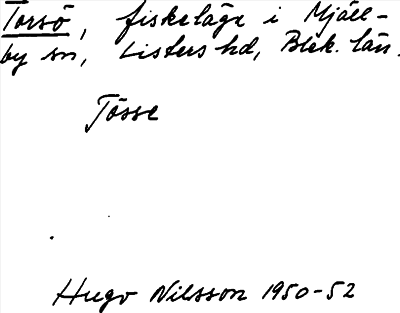 Torsö, fiskeläge i Mjäll-
by sn, Listers hd, Blek. län.
Tösse
Hugo Nilsson 1950-52